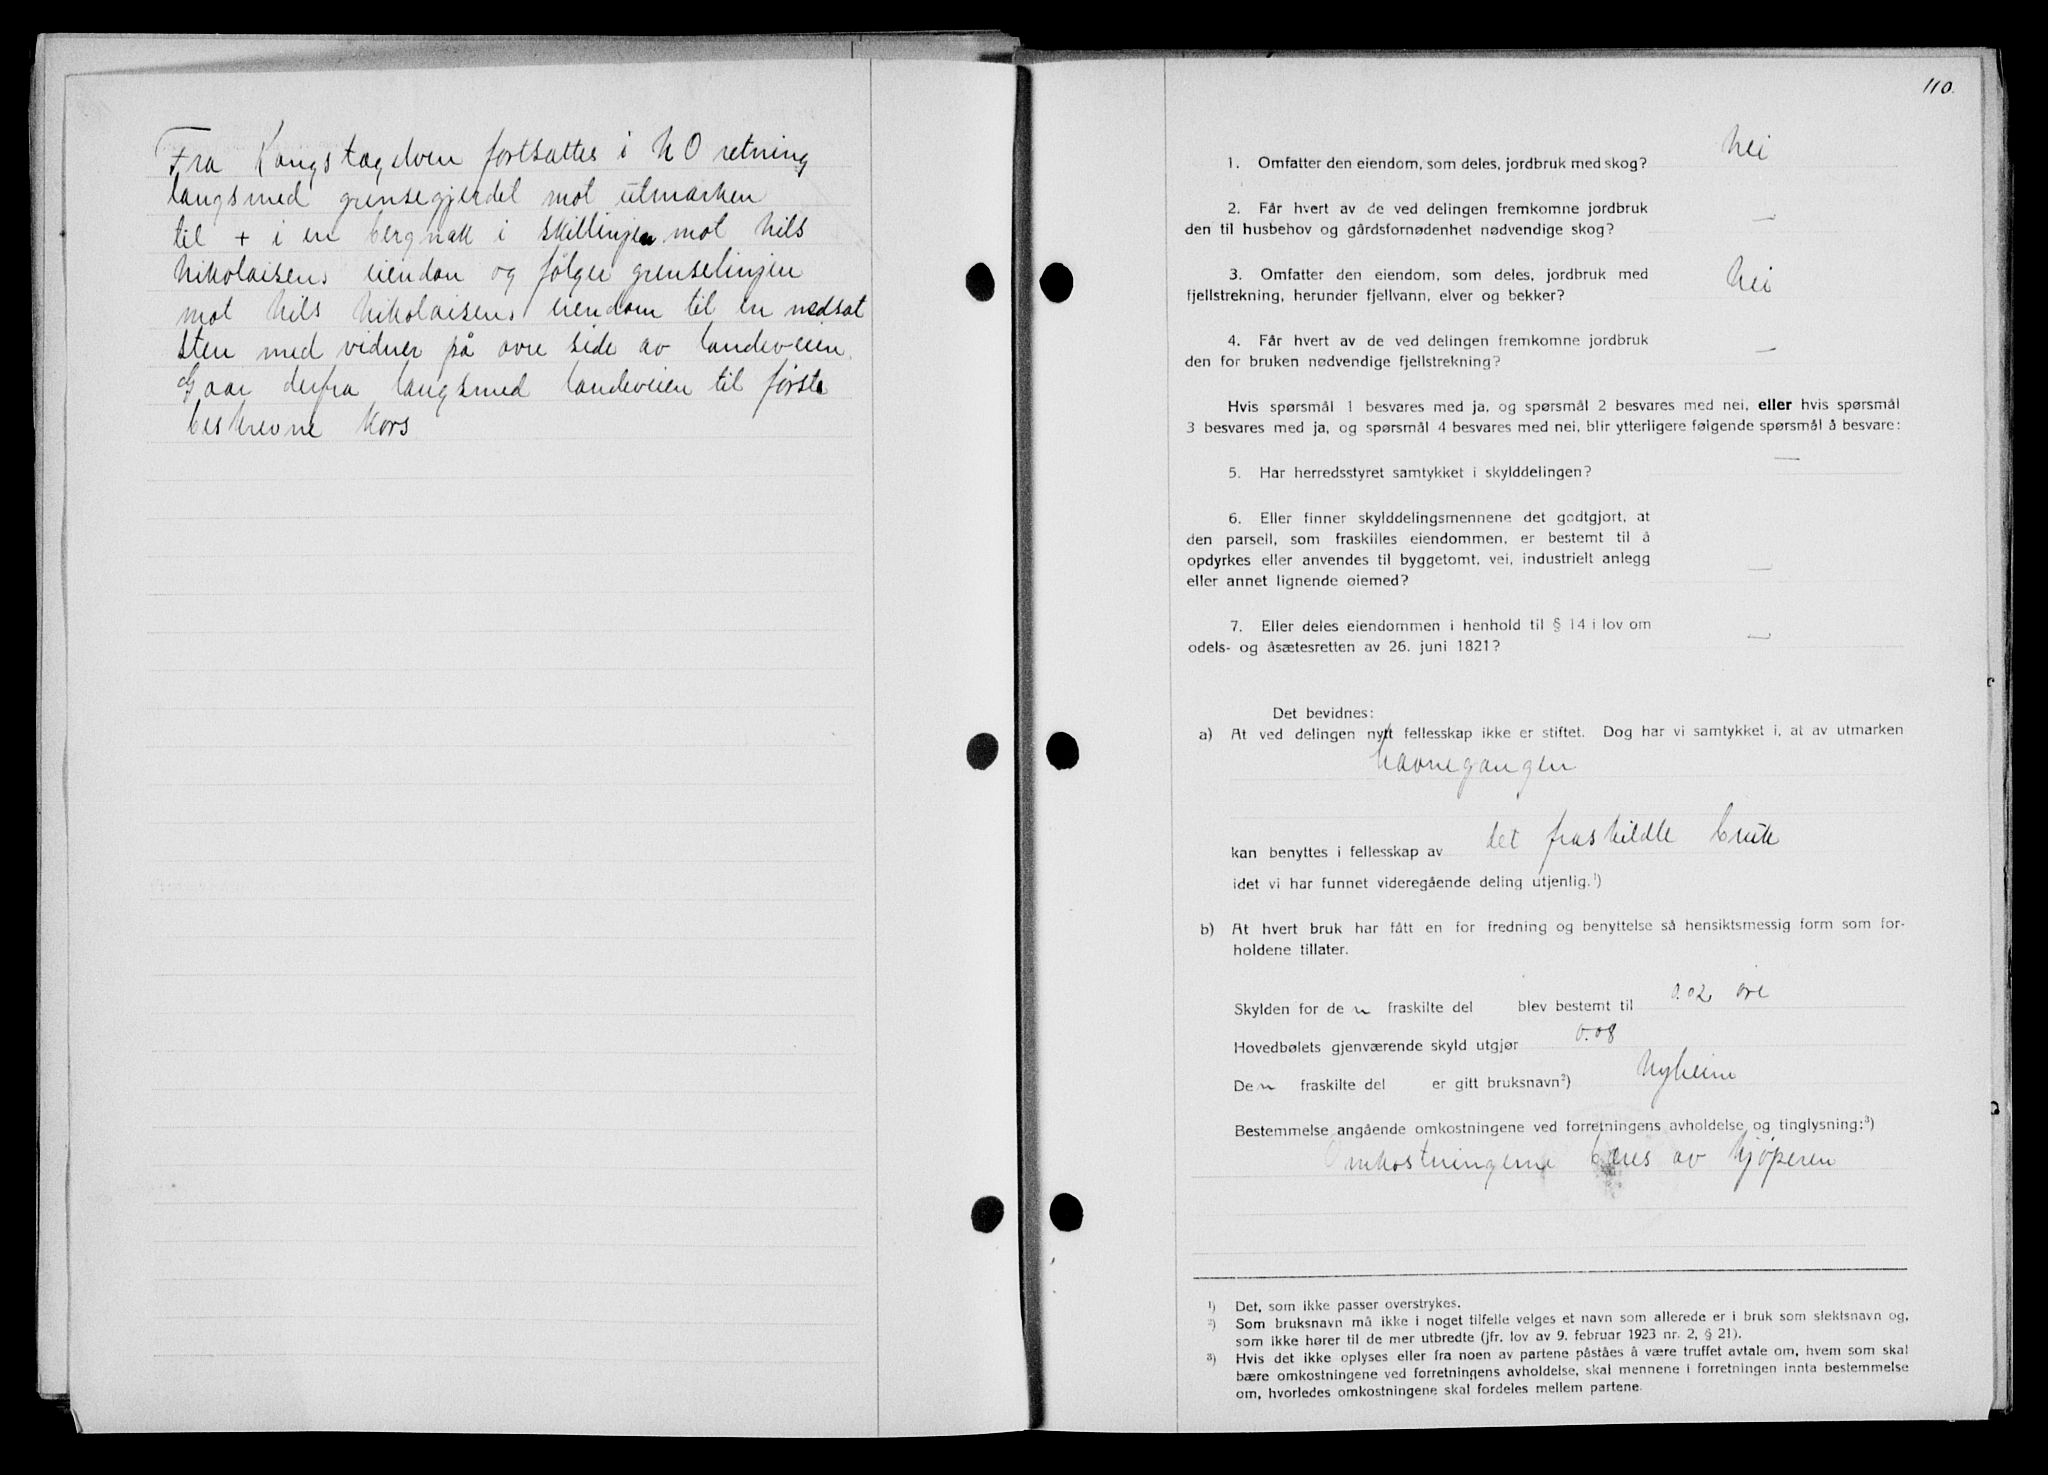 Fra Kongstadelven fortsættes i NO retning
langsmed grensegjerdet mot utmarken
til + i en bergnak i skillinjen mot Nils
Nikolaisens eiendom og følger grenselinjen
mot Nils Nikolaisens eiendom til en nedsat
sten med vidner på øvre side av landeveien.
Gaar derfra langsmed landeveien til første
beskrevne kors
110.
1. Omfatter den eiendom, som deles, jordbruk med skog? Nei
2. Får hvert av de ved delingen fremkomne jordbruk
den til husbehov og gårdsfornødenhet nødvendige skog? —
3. Omfatter den eiendom, som deles, jordbruk med
fjellstrekning, herunder fjellvann, elver og bekker? Nei
4. Får hvert av de ved delingen fremkomne jordbruk
den for bruken nødvendige fjellstrekning? —
Hvis spørsmål 1 besvares med ja, og spørsmål 2 besvares med nei, eller hvis spørsmål
3 besvares med ja, og spørsmål 4 besvares med nei, blir ytterligere følgende spørsmål å besvare:
5. Har herredsstyret samtykket i skylddelingen? —
6. Eller finner skylddelingsmennene det godtgjort, at
den parsell, som fraskilles eiendommen, er bestemt til å
opdyrkes eller anvendes til byggetomt, vei, industrielt anlegg
eller annet lignende øiemed? —
7. Eller deles eiendommen i henhold til § 14 i lov om
odels- og åsætesretten av 26. juni 1821? —
Det bevidnes:
a) At ved delingen nytt fellesskap ikke er stiftet. Dog har vi samtykket i, at av utmarken
havnegangen
kan benyttes i fellesskap av det fraskildte bruk
idet vi har funnet videregående deling utjenlig.¹)
b) At hvert bruk har fått en for fredning og benyttelse så hensiktsmessig form som for-
holdene tillater.
Skylden for den fraskilte del blev bestemt til 0.02 øre
Hovedbølets gjenværende skyld utgjør 0.08
Den fraskilte del er gitt bruksnavn²) Nyheim
Bestemmelse angående omkostningene ved forretningens avholdelse og tinglysning:³)
Omkostningerne bæres av kjøperen
¹) Det, som ikke passer overstrykes.
²) Som bruksnavn må ikke i noget tilfelle velges et navn som allerede er i bruk som slektsnavn og,
som ikke hører til de mer utbredte (jfr. lov av 9. februar 1923 nr. 2, § 21).
³) Hvis det ikke oplyses eller fra noen av partene påståes å være truffet avtale om, hvem som skal
bære omkostningene ved forretningens avholdelse, skal mennene i forretningen innta bestemmelse
om, hvorledes omkostningene skal fordeles mellem partene.